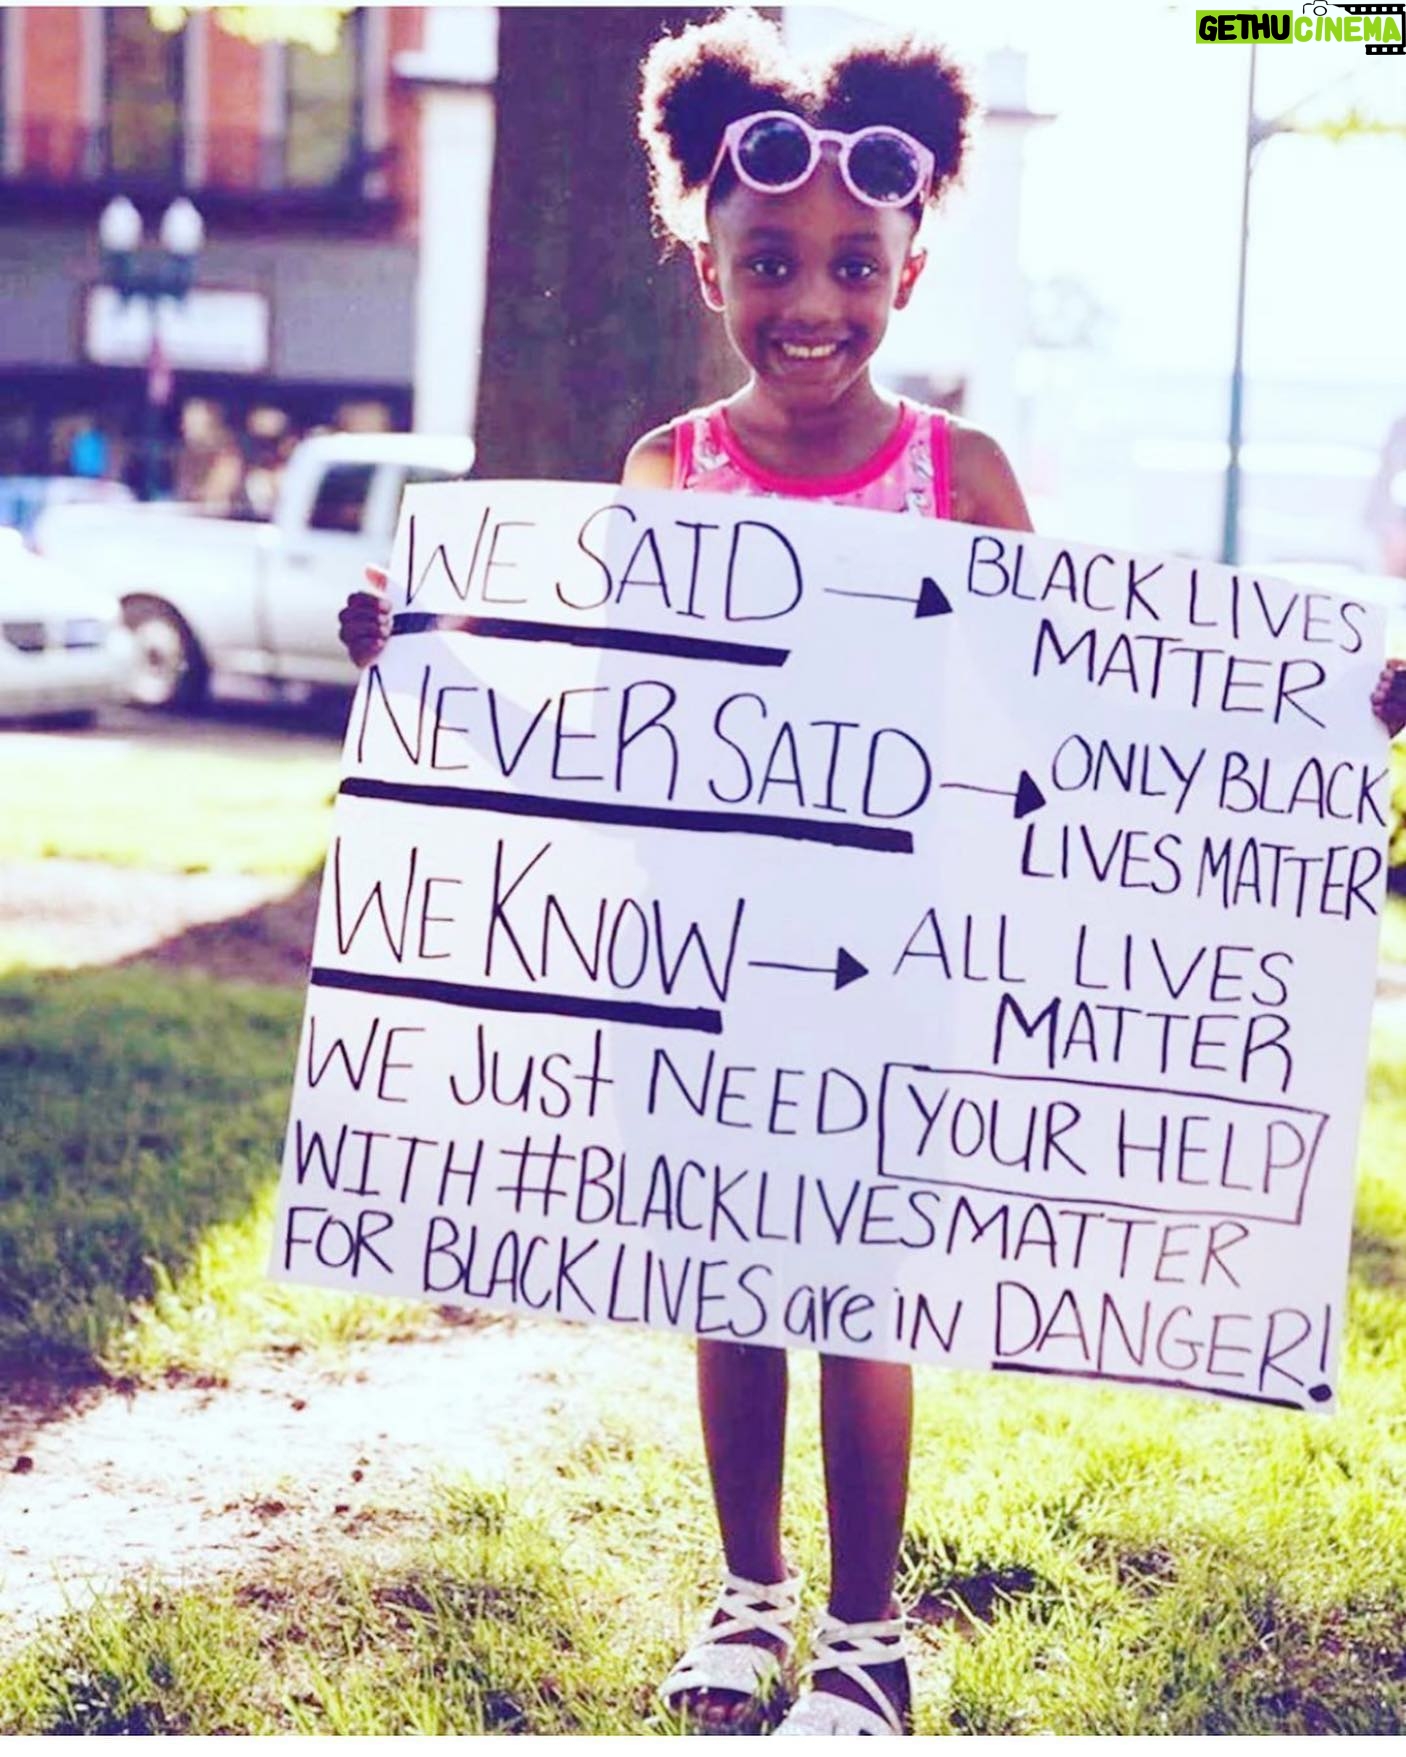 GETHUCINEMA
WE SAID → BLACK LIVES
MATTER
NEVER SAID → ONLY BLACK
LIVES MATTER
WE KNOW → ALL LIVES
MATTER
WE Just NEED YOUR HELP
WITH #BLACKLIVESMATTER
FOR BLACK LIVES are iN DANGER!